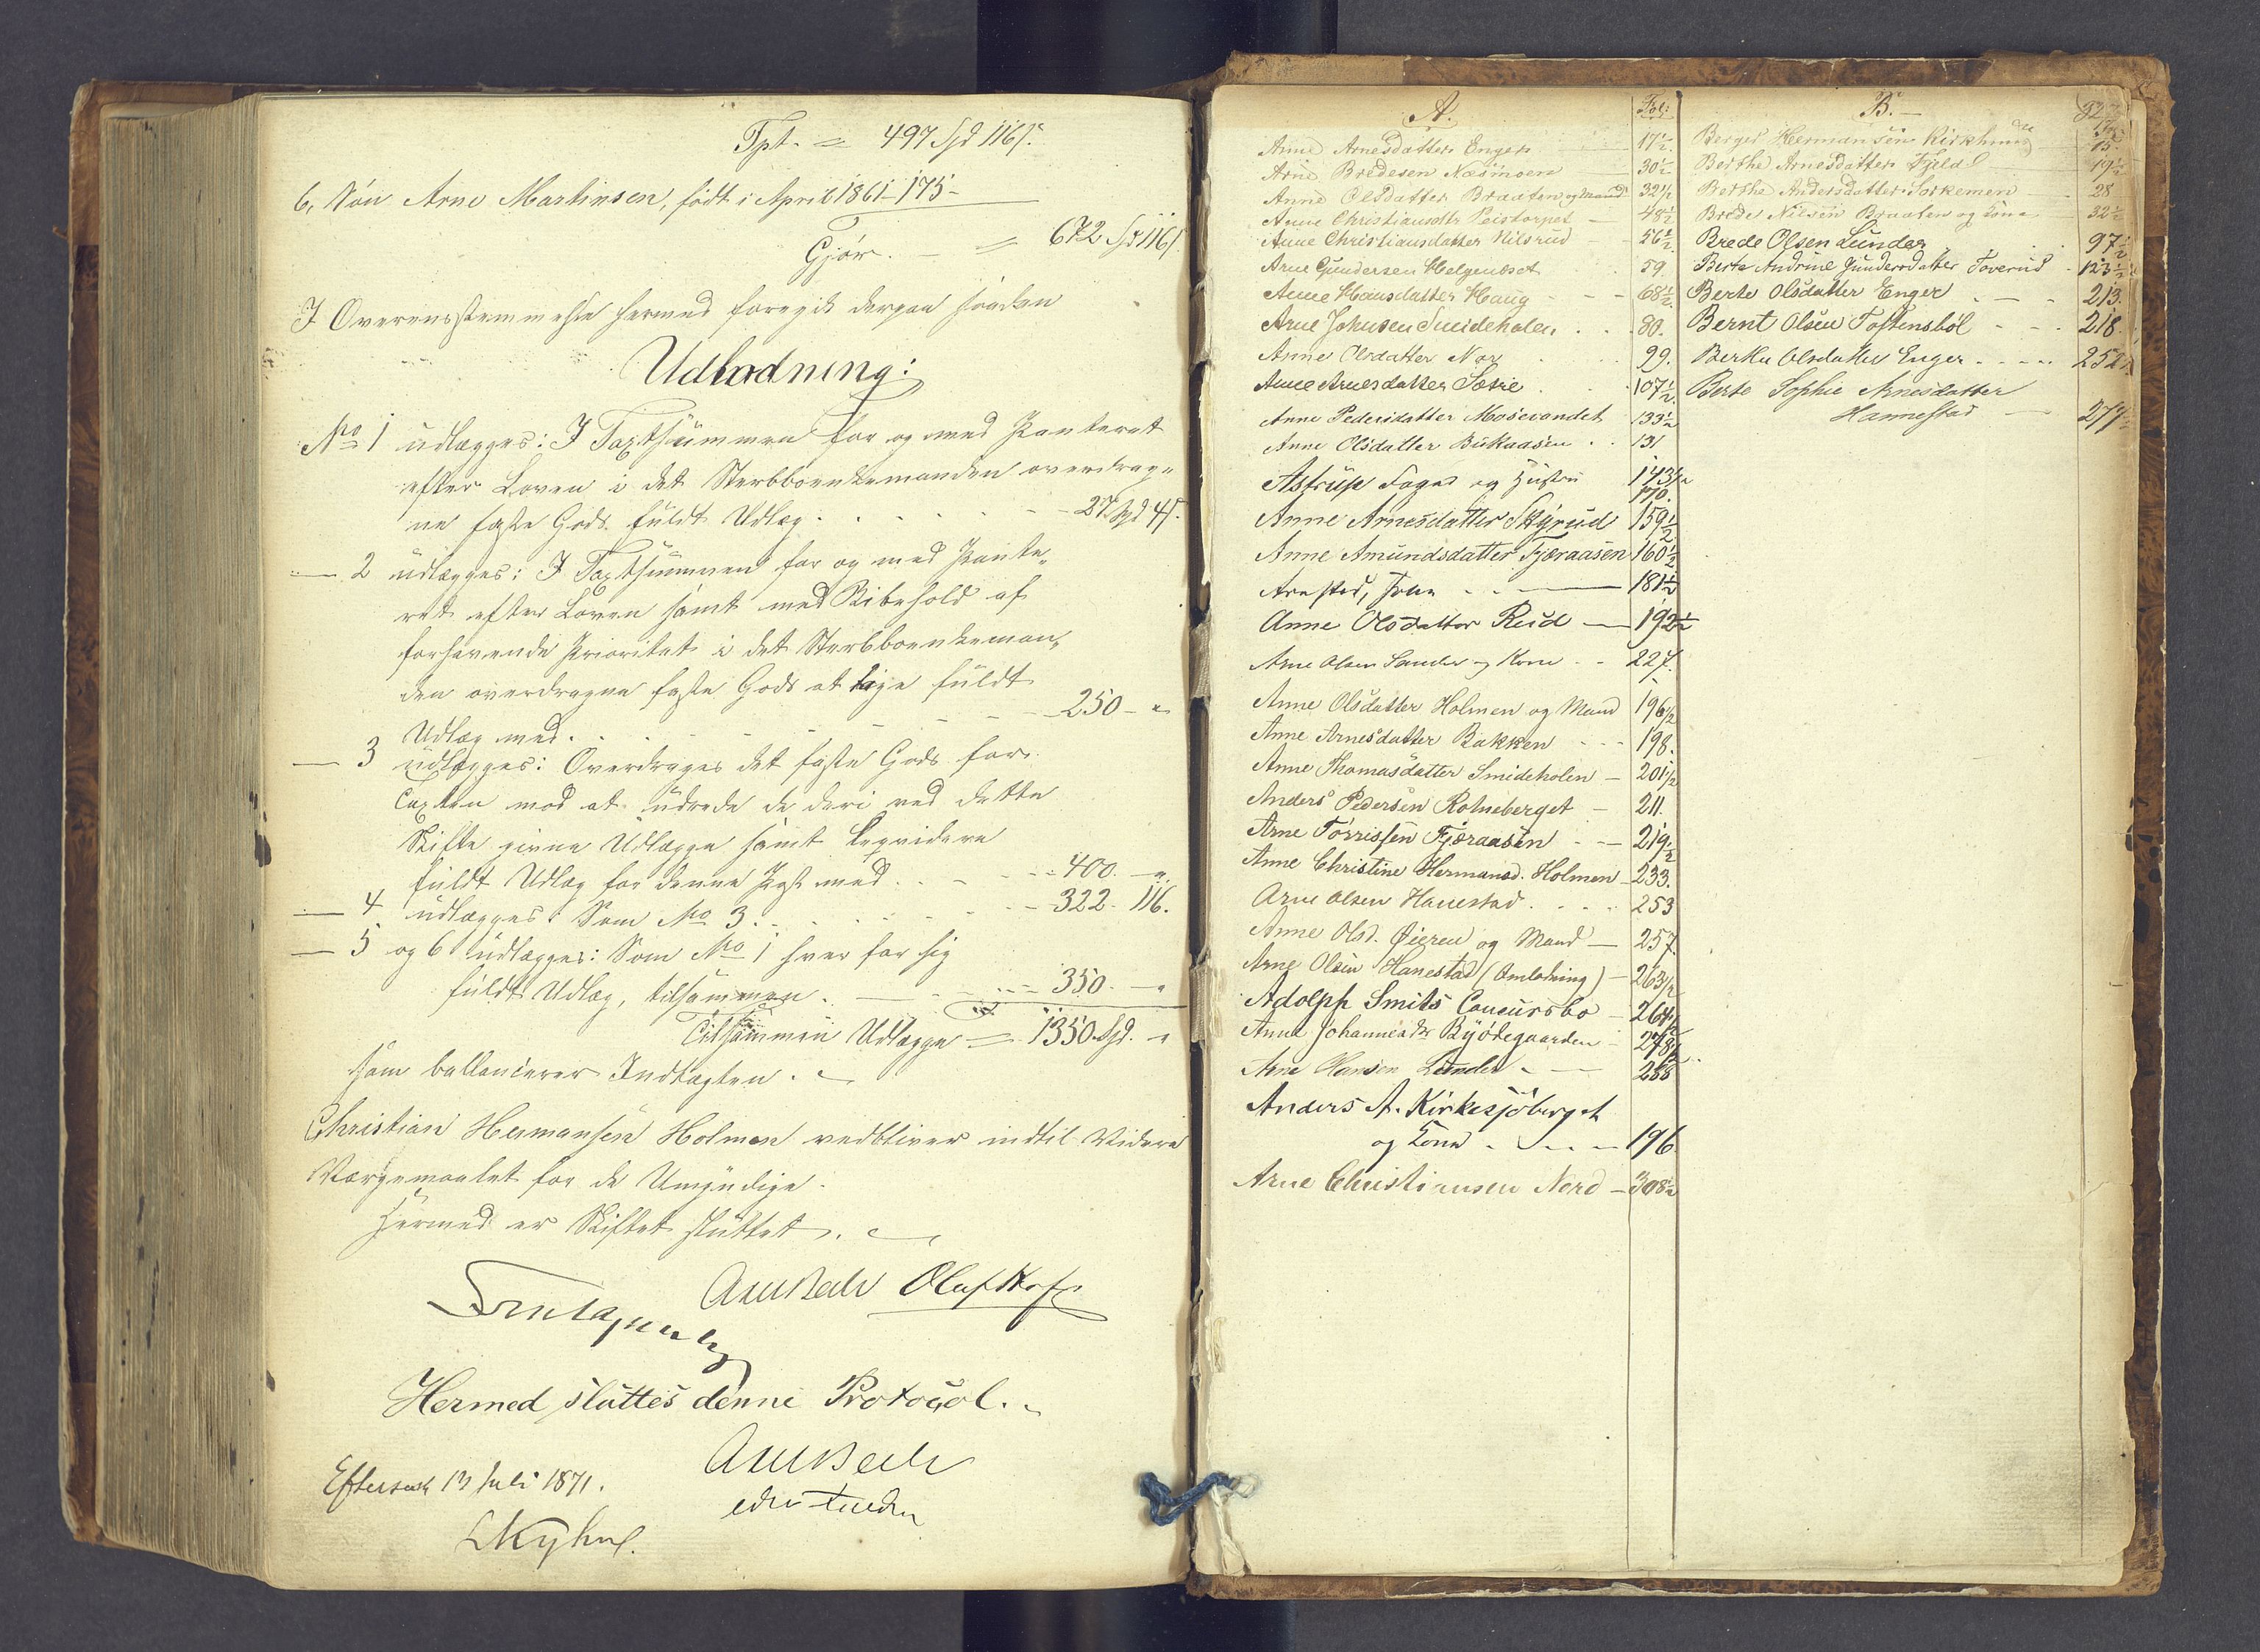 Tpt. = 497 Spd 116 s.
6, Søn Arne Martinsen, født i April 1861 - 175 -
Gjør. - = 672 Spd 116 s.
I Overensstemmelse hermed foregik derpaa saadan
Udlodning:
No 1 udlægges: I Taxtsummen for og med Panteret
efter Loven i det Sterbboenkemanden overdrag-
ne faste Gods fuldt Udlæg . . . . 27 Spd 4 s.
- 2 udlægges: I Taxtsummen for og med Pante-
ret efter Loven samt med Bibehold af
forhavende Prioritet i det Sterbboenkeman-
den overdragne faste Gods at tage fuldt
Udlæg med . . . 250 - "
- 3 udlægges: Overdrages det faste Gods for
Taxten mod at udrede de deri ved dette
Skifte givne Udlægge samt liqvidere
fuldt Udlæg for denne Post med . . . 400. - "
- 4 udlægges: Som No 3. . . . 322. 116.
- 5 og 6 udlægges: Som No 1 hver for sig
fuldt Udlæg, tilsammen. - 350. - "
Tilsammen Udlægge = 1350 Spd. - "
som ballancerer Indtægten.
Christian Hermansen Holmen vedbliver indtil Videre
Værgemaalet for de Umyndige.
Hermed er Skiftet sluttet.
Hermed sluttes denne Protocol.
13 Juli 1871.
A. Fol:
Anne Arnesdatter Enger 17 1/2
Arne Bredesen Næsmoen 30 1/2
Anne Olsdatter Braaten og Mand 32 1/2
Anne Christiansdtr Peistorpet 48 1/2
Anne Christiansdatter Nilsrud 56 1/2
Arne Gundersen Helgenæset 59
Anne Hansdatter Haug 68 1/2
Arne Johnsen Smideholen 80.
Anne Olsdatter Nor 99.
Anne Arnesdatter Sætre 107 1/2
Anne Pedersdatter Mosevandet 133 1/2
Anne Olsdatter Bukaasen 131
Astrup Foged og Hustru 143 1/2
170.
Anne Arnesdatter Skyrud 159 1/2
Anne Amundsdatter Fjæraasen 160 1/2
181 1/2
Anne Olsdatter Rud 192 1/2
Arne Olsen Sander og Kone 227.
Anne Olsdatter Holmen og Mand 196 1/2
Anne Arnesdatter Bakken 198.
Anne Thomasdatter Smideholen 201 1/2
Anders Pedersen Rotneberget 211.
Arne Torrissen Fjæraasen 219 1/2
Anne Christine Hermansd. Holmen 233.
Arne Olsen Hanestad 253
Anne Olsd. Øieren og Mand 257
Arne Olsen Hanestad (Omlodning) 263 1/2
Adolph Smits Concursbo 264 1/2
Anne Johannesdtr Byødegaarden 278 1/2
Arne Hansen Lunder 288
Anders A. Kirkesjøberget
og Kone 196
Arne Christiansen Nord 308 1/2
B. 327
Berger Hermansen Kirkhung 15.
Berthe Arnesdatter Fjeld 19 1/2
Berthe Andersdatter Sorkemoen 28
Brede Nilsen Braaten og Kone 32 1/2
Brede Olsen Lunder 97 1/2
Berte Andrine Gundersdatter Toverud 123 1/2
Berte Olsdatter Enger 213.
Bernt Olsen Toftensbøl 218.
Berthe Olsdatter Enger 252
Berte Sophie Arnesdatter
Hannestad 277 1/2